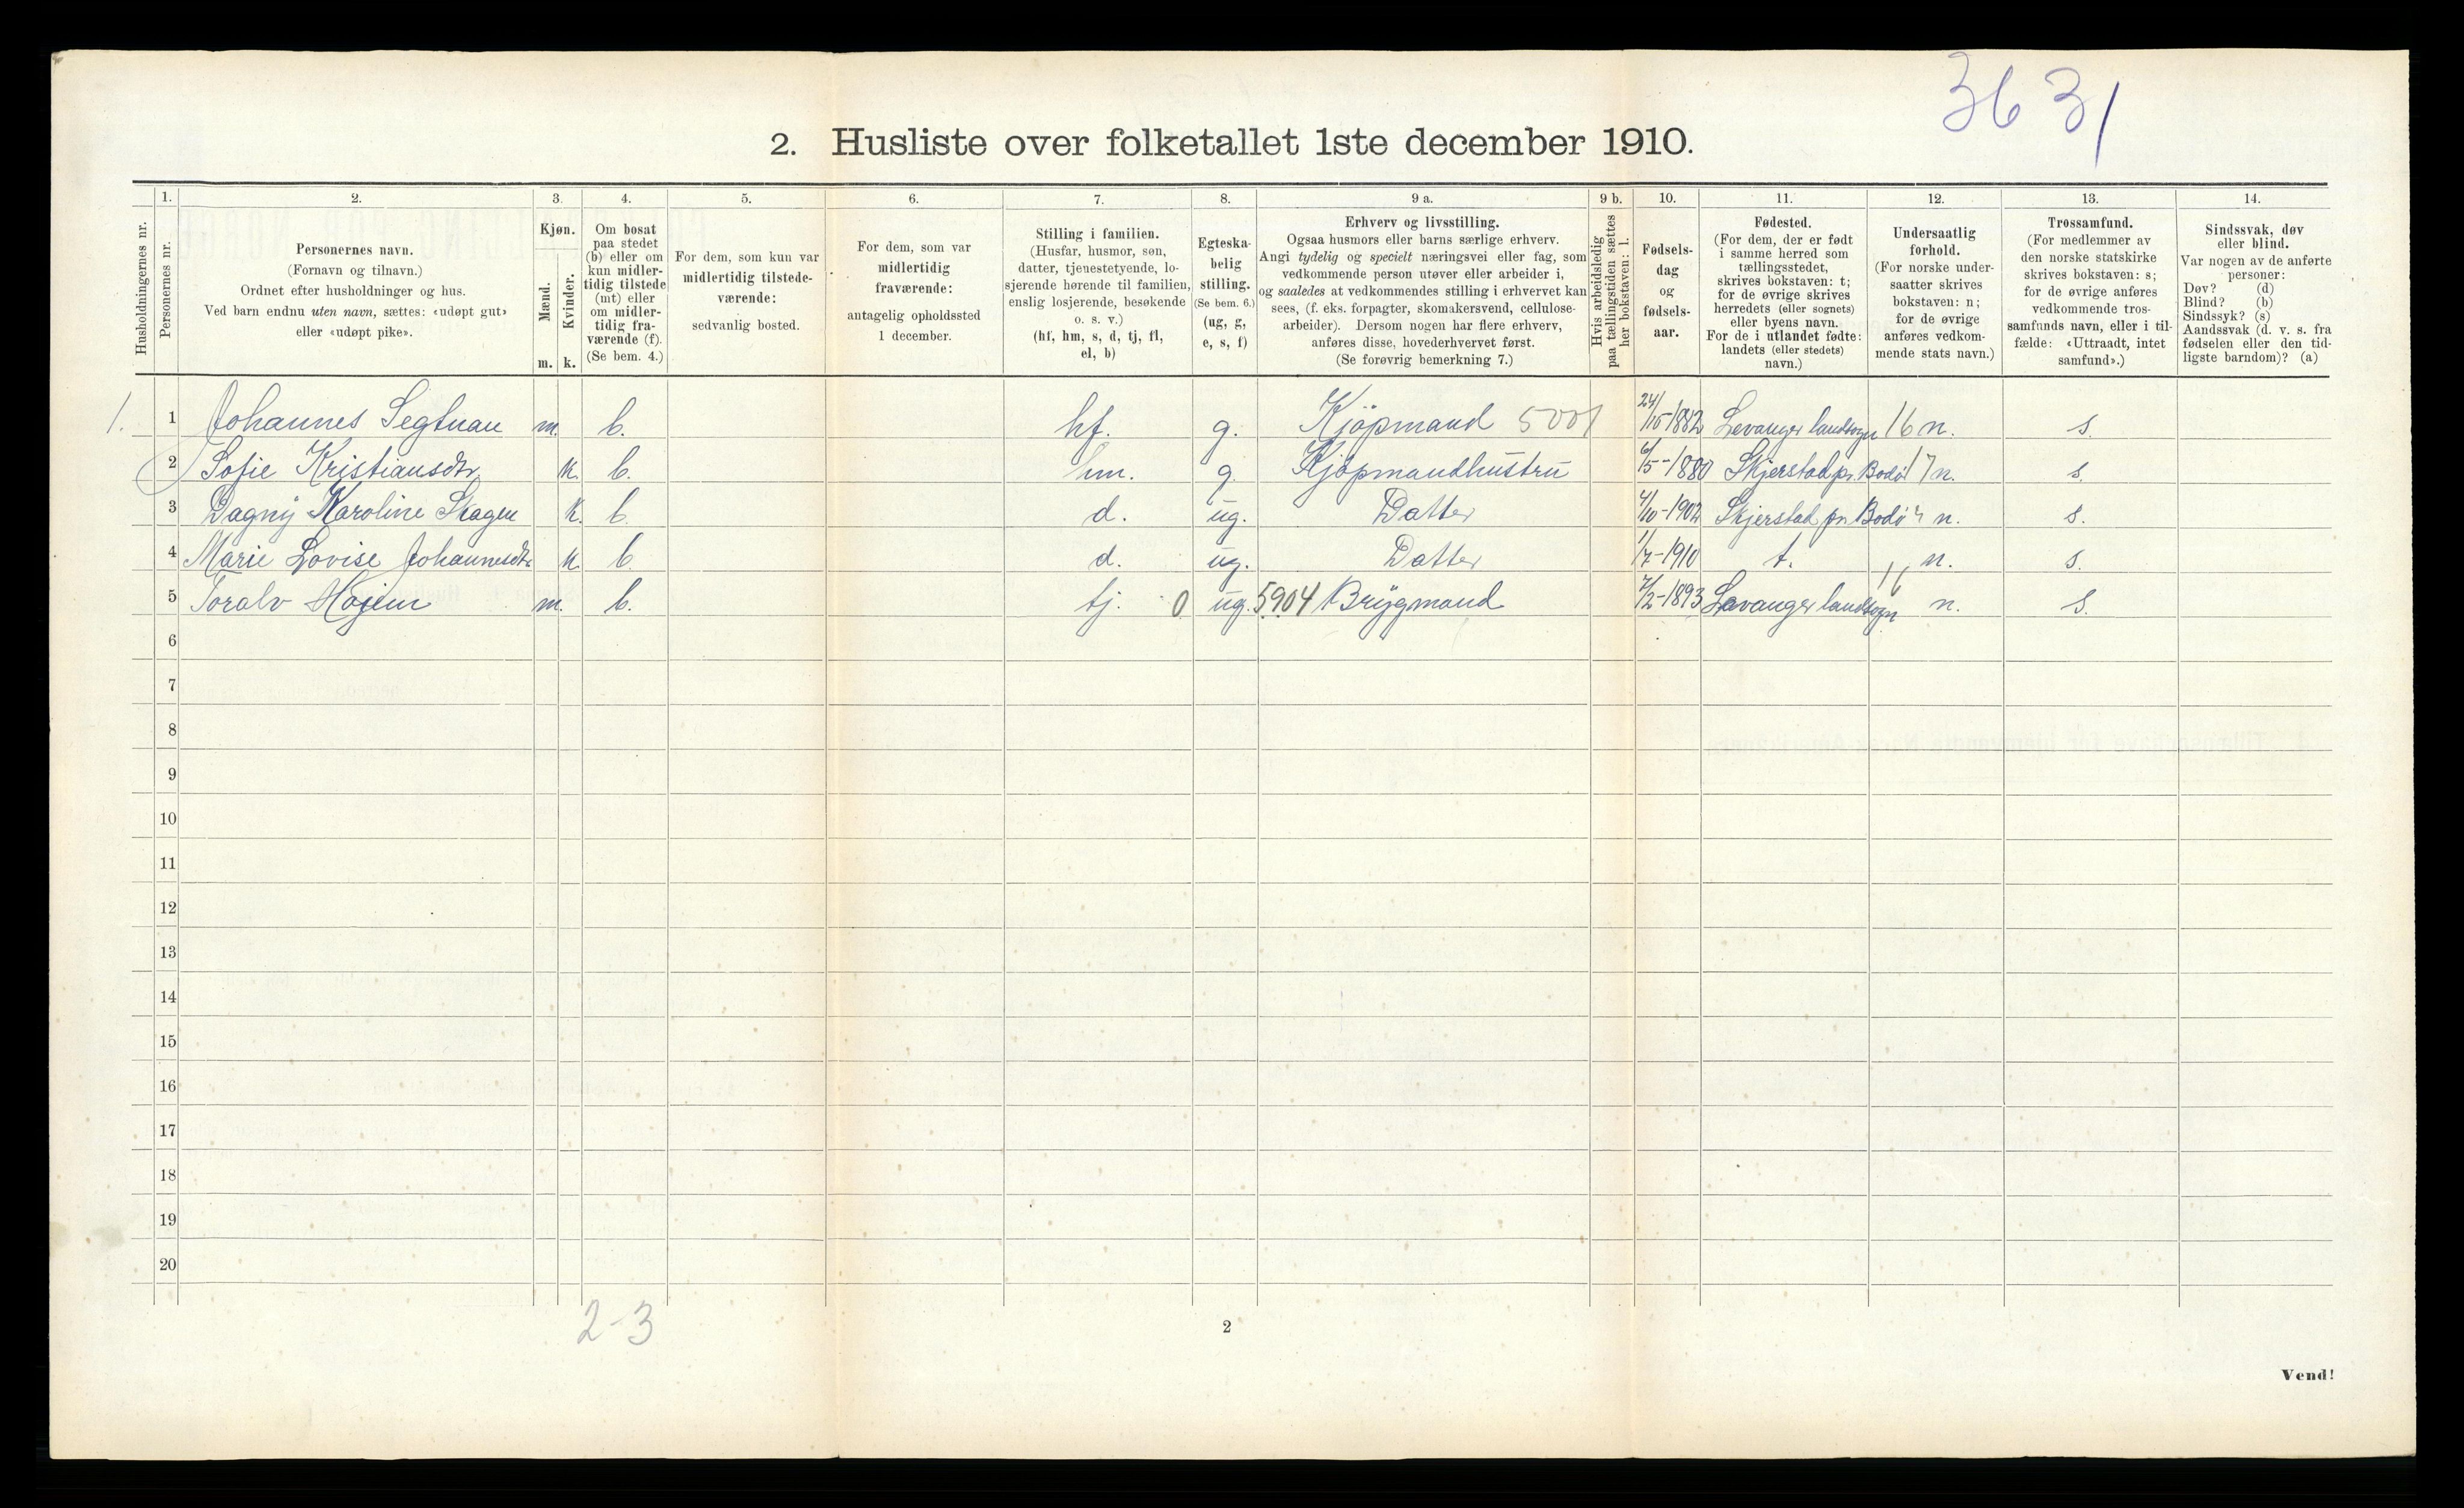 3631
2. Husliste over folketallet 1ste december 1910.
1. 2. 3. 4. 5. 6. 7. 8. 9 a. 9 b. 10. 11. 12. 13. 14.
Husholdningernes nr.
Personernes nr.
Personernes navn.
(Fornavn og tilnavn.)
Ordnet efter husholdninger og hus.
Ved barn endnu uten navn, sættes: «udøpt gut»
eller «udøpt pike».
Kjøn.
Mænd.
Kvinder.
m. k.
Om bosat
paa stedet
(b) eller om
kun midler-
tidig tilstede
(mt) eller
om midler-
tidig fra-
værende (f).
(Se bem. 4.)
For dem, som kun var
midlertidig tilstede-
værende:
sedvanlig bosted.
For dem, som var
midlertidig
fraværende:
antagelig opholdssted
1 december.
Stilling i familien.
(Husfar, husmor, søn,
datter, tjenestetyende, lo-
sjerende hørende til familien,
enslig losjerende, besøkende
o. s. v.)
(hf, hm, s, d, tj, fl,
el, b)
Egteska-
belig
stilling.
(Se bem. 6.)
(ug, g,
e, s, f)
Erhverv og livsstilling.
Ogsaa husmors eller barns særlige erhverv.
Angi tydelig og specielt næringsvei eller fag, som
vedkommende person utøver eller arbeider i,
og saaledes at vedkommendes stilling i erhvervet kan
sees, (f. eks. forpagter, skomakersvend, cellulose-
arbeider). Dersom nogen har flere erhverv,
anføres disse, hovederhvervet først.
(Se forøvrig bemerkning 7.)
Hvis arbeidsledig
paa tællingstiden sættes
her bokstaven: l.
Fødsels-
dag
og
fødsels-
aar.
Fødested.
(For dem, der er født
i samme herred som
tællingsstedet,
skrives bokstaven: t;
for de øvrige skrives
herredets (eller sognets)
eller byens navn.
For de i utlandet fødte:
landets (eller stedets)
navn.)
Undersaatlig
forhold.
(For norske under-
saatter skrives
bokstaven: n;
for de øvrige
anføres vedkom-
mende stats navn.)
Trossamfund.
(For medlemmer av
den norske statskirke
skrives bokstaven: s;
for de øvrige anføres
vedkommende tros-
samfunds navn, eller i til-
fælde: «Uttraadt, intet
samfund».)
Sindssvak, døv
eller blind.
Var nogen av de anførte
personer:
Døv? (d)
Blind? (b)
Sindssyk? (s)
Aandssvak (d. v. s. fra
fødselen eller den tid-
ligste barndom)? (a)
1. 1 Johannes Segtnan m. b. hf. g. Kjöpmand 5001 24/10-1882 Levanger landsogn 16 n. s.
2 Sofie Kristiansdtr. k. b. hm. g. Kjöpmandhustru 6/5-1880 Skjerstad pr. Bodö 17 n. s.
3 Dagny Karoline Skagen k. b. d. ug. Datter 4/10-1902 Skjerstad pr Bodö n. s.
4 Marie Lovise Johannesdtr. k. b. d. ug. Datter 1/7-1910 t. n. s.
5 Toralv Hojem m. b. tj. 0 ug. 5904 Brygmand 7/2-1893 Levanger landsogn 16 n. s.
6
7
8
9
10
11
12
13
14
15
16
17
18
19
20
2-3
2
Vend!